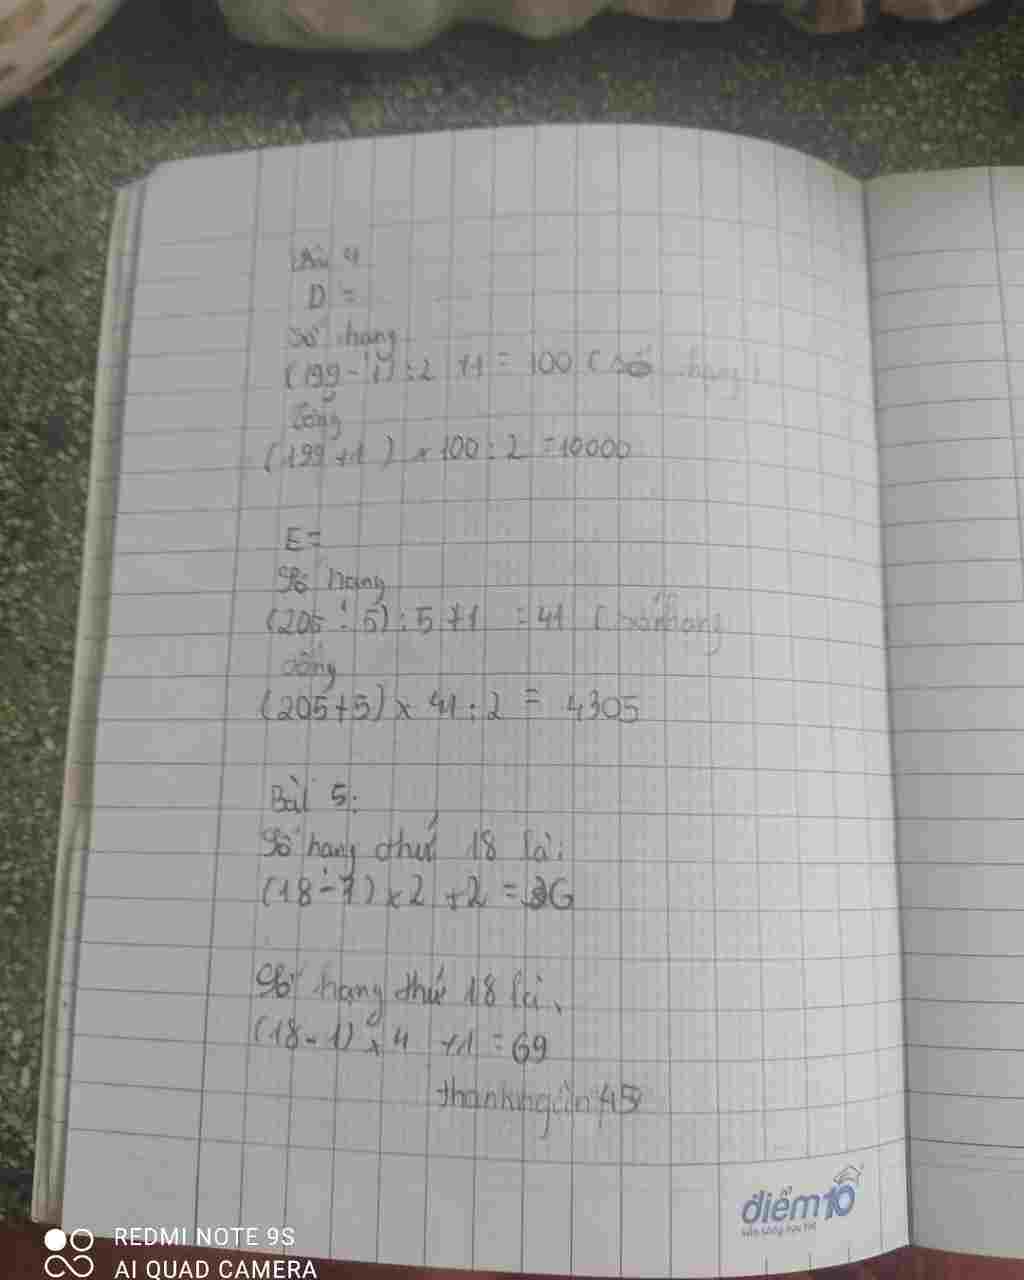 Bài 4
D =
Số hạng
(199 - 1) : 2 + 1 = 100 ( số hạng )
Tổng
(199 + 1 ) x 100 : 2 = 10000
E =
Số hạng
(205 - 5) : 5 + 1 = 41 ( số hạng
Tổng
(205 + 5) x 41 : 2 = 4305
Bài 5:
Số hạng thứ 18 là:
(18 - 1) x 2 + 2 = 36
Số hạng thứ 18 là,
(18 - 1) x 4 + 1 = 69
thanhngân 45
điểm10
sẵn sàng học tốt
REDMI NOTE 9S
AI QUAD CAMERA